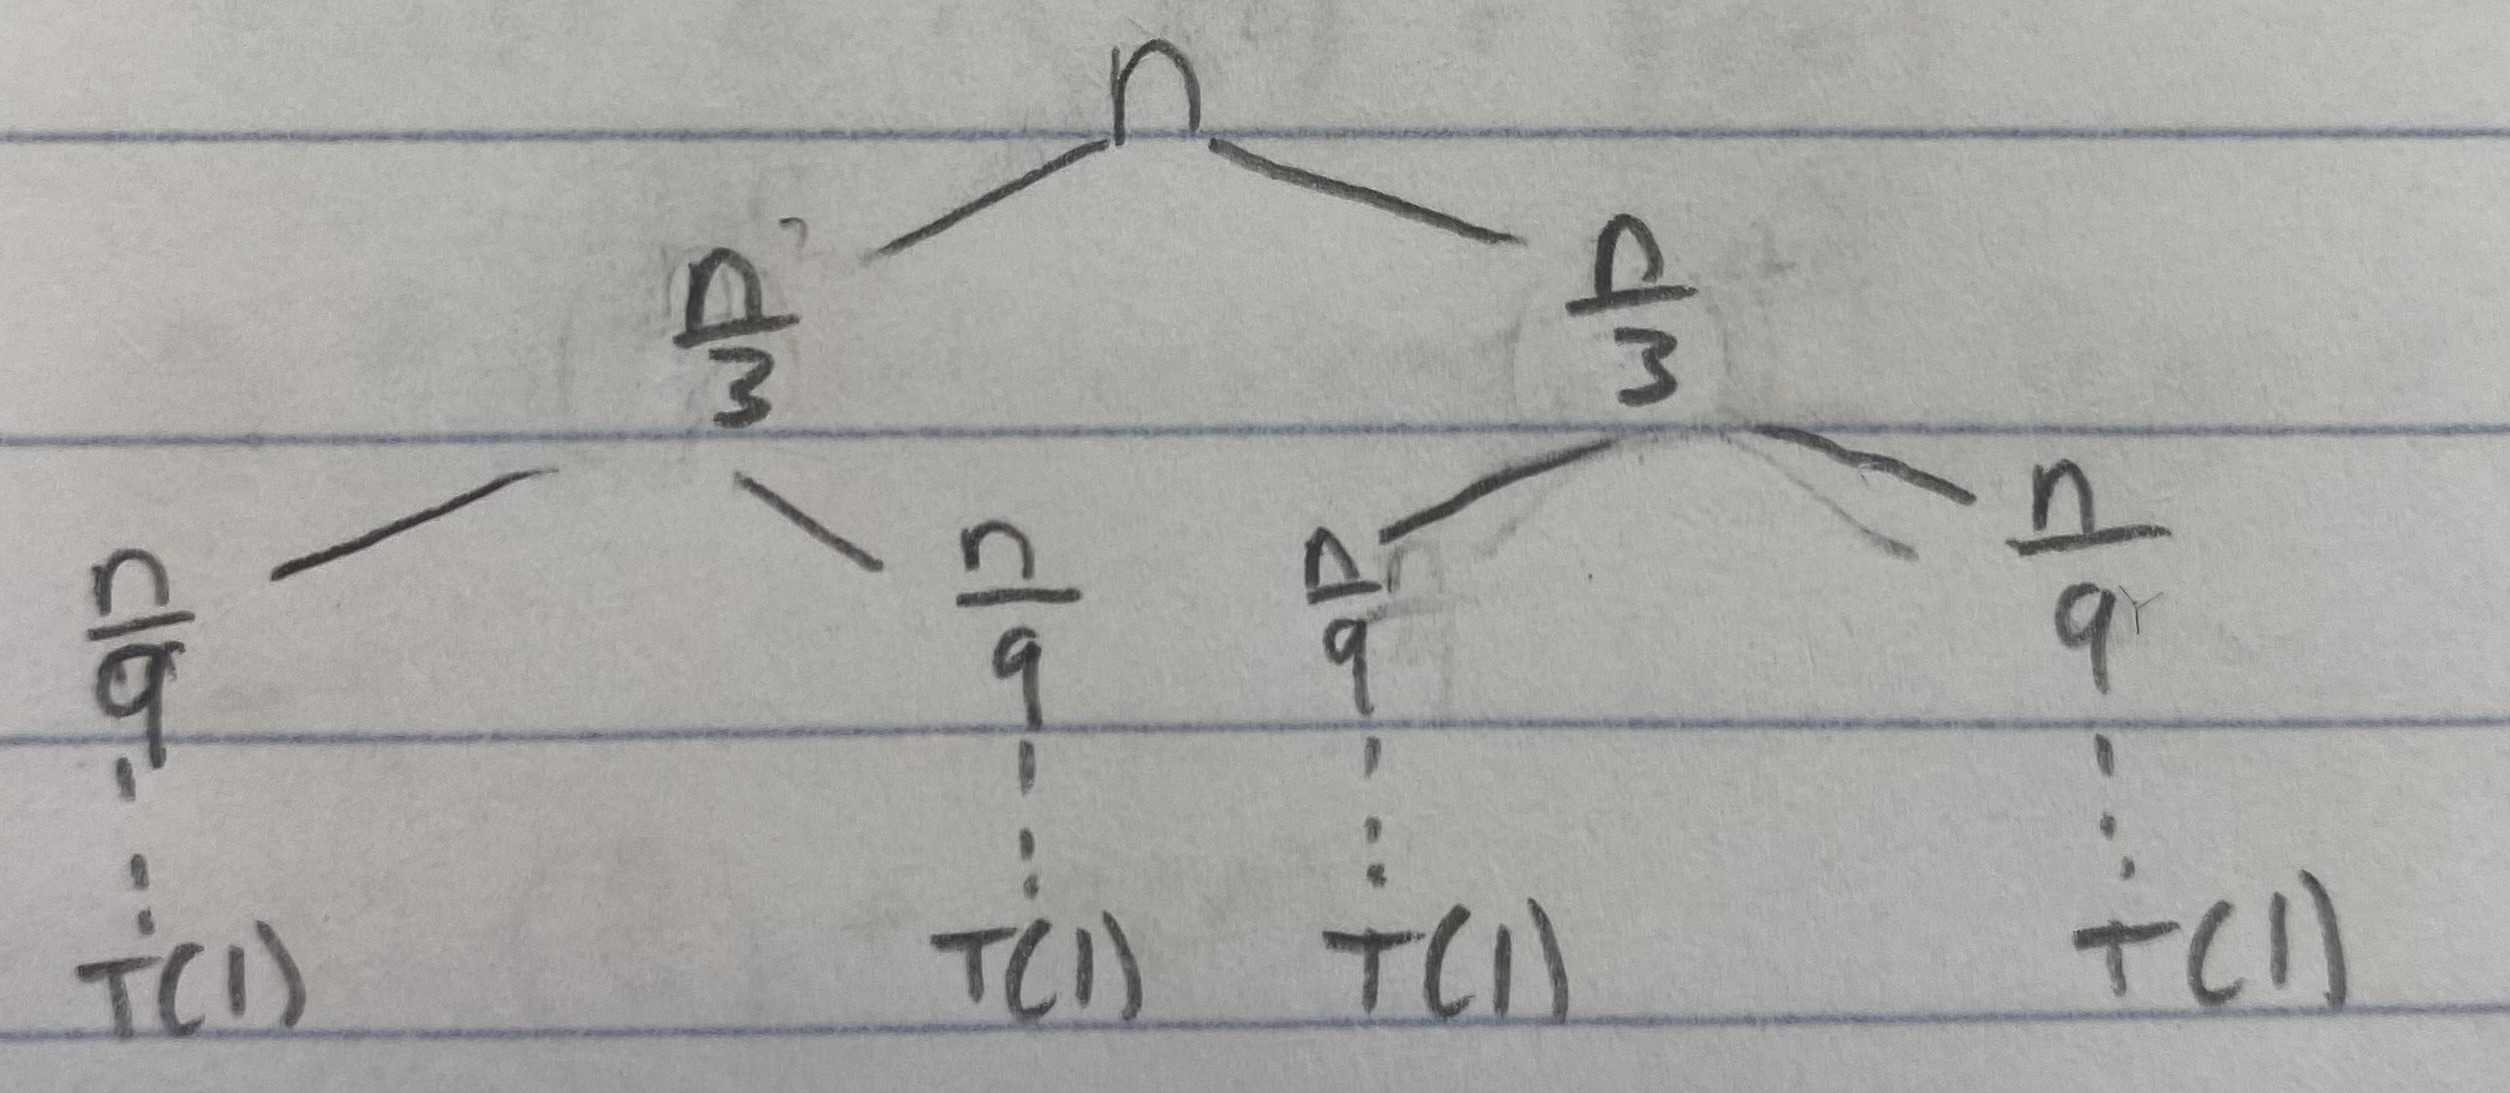 n
n/3 n/3
n/9 n/9 n/9 n/9
T(1) T(1) T(1) T(1)